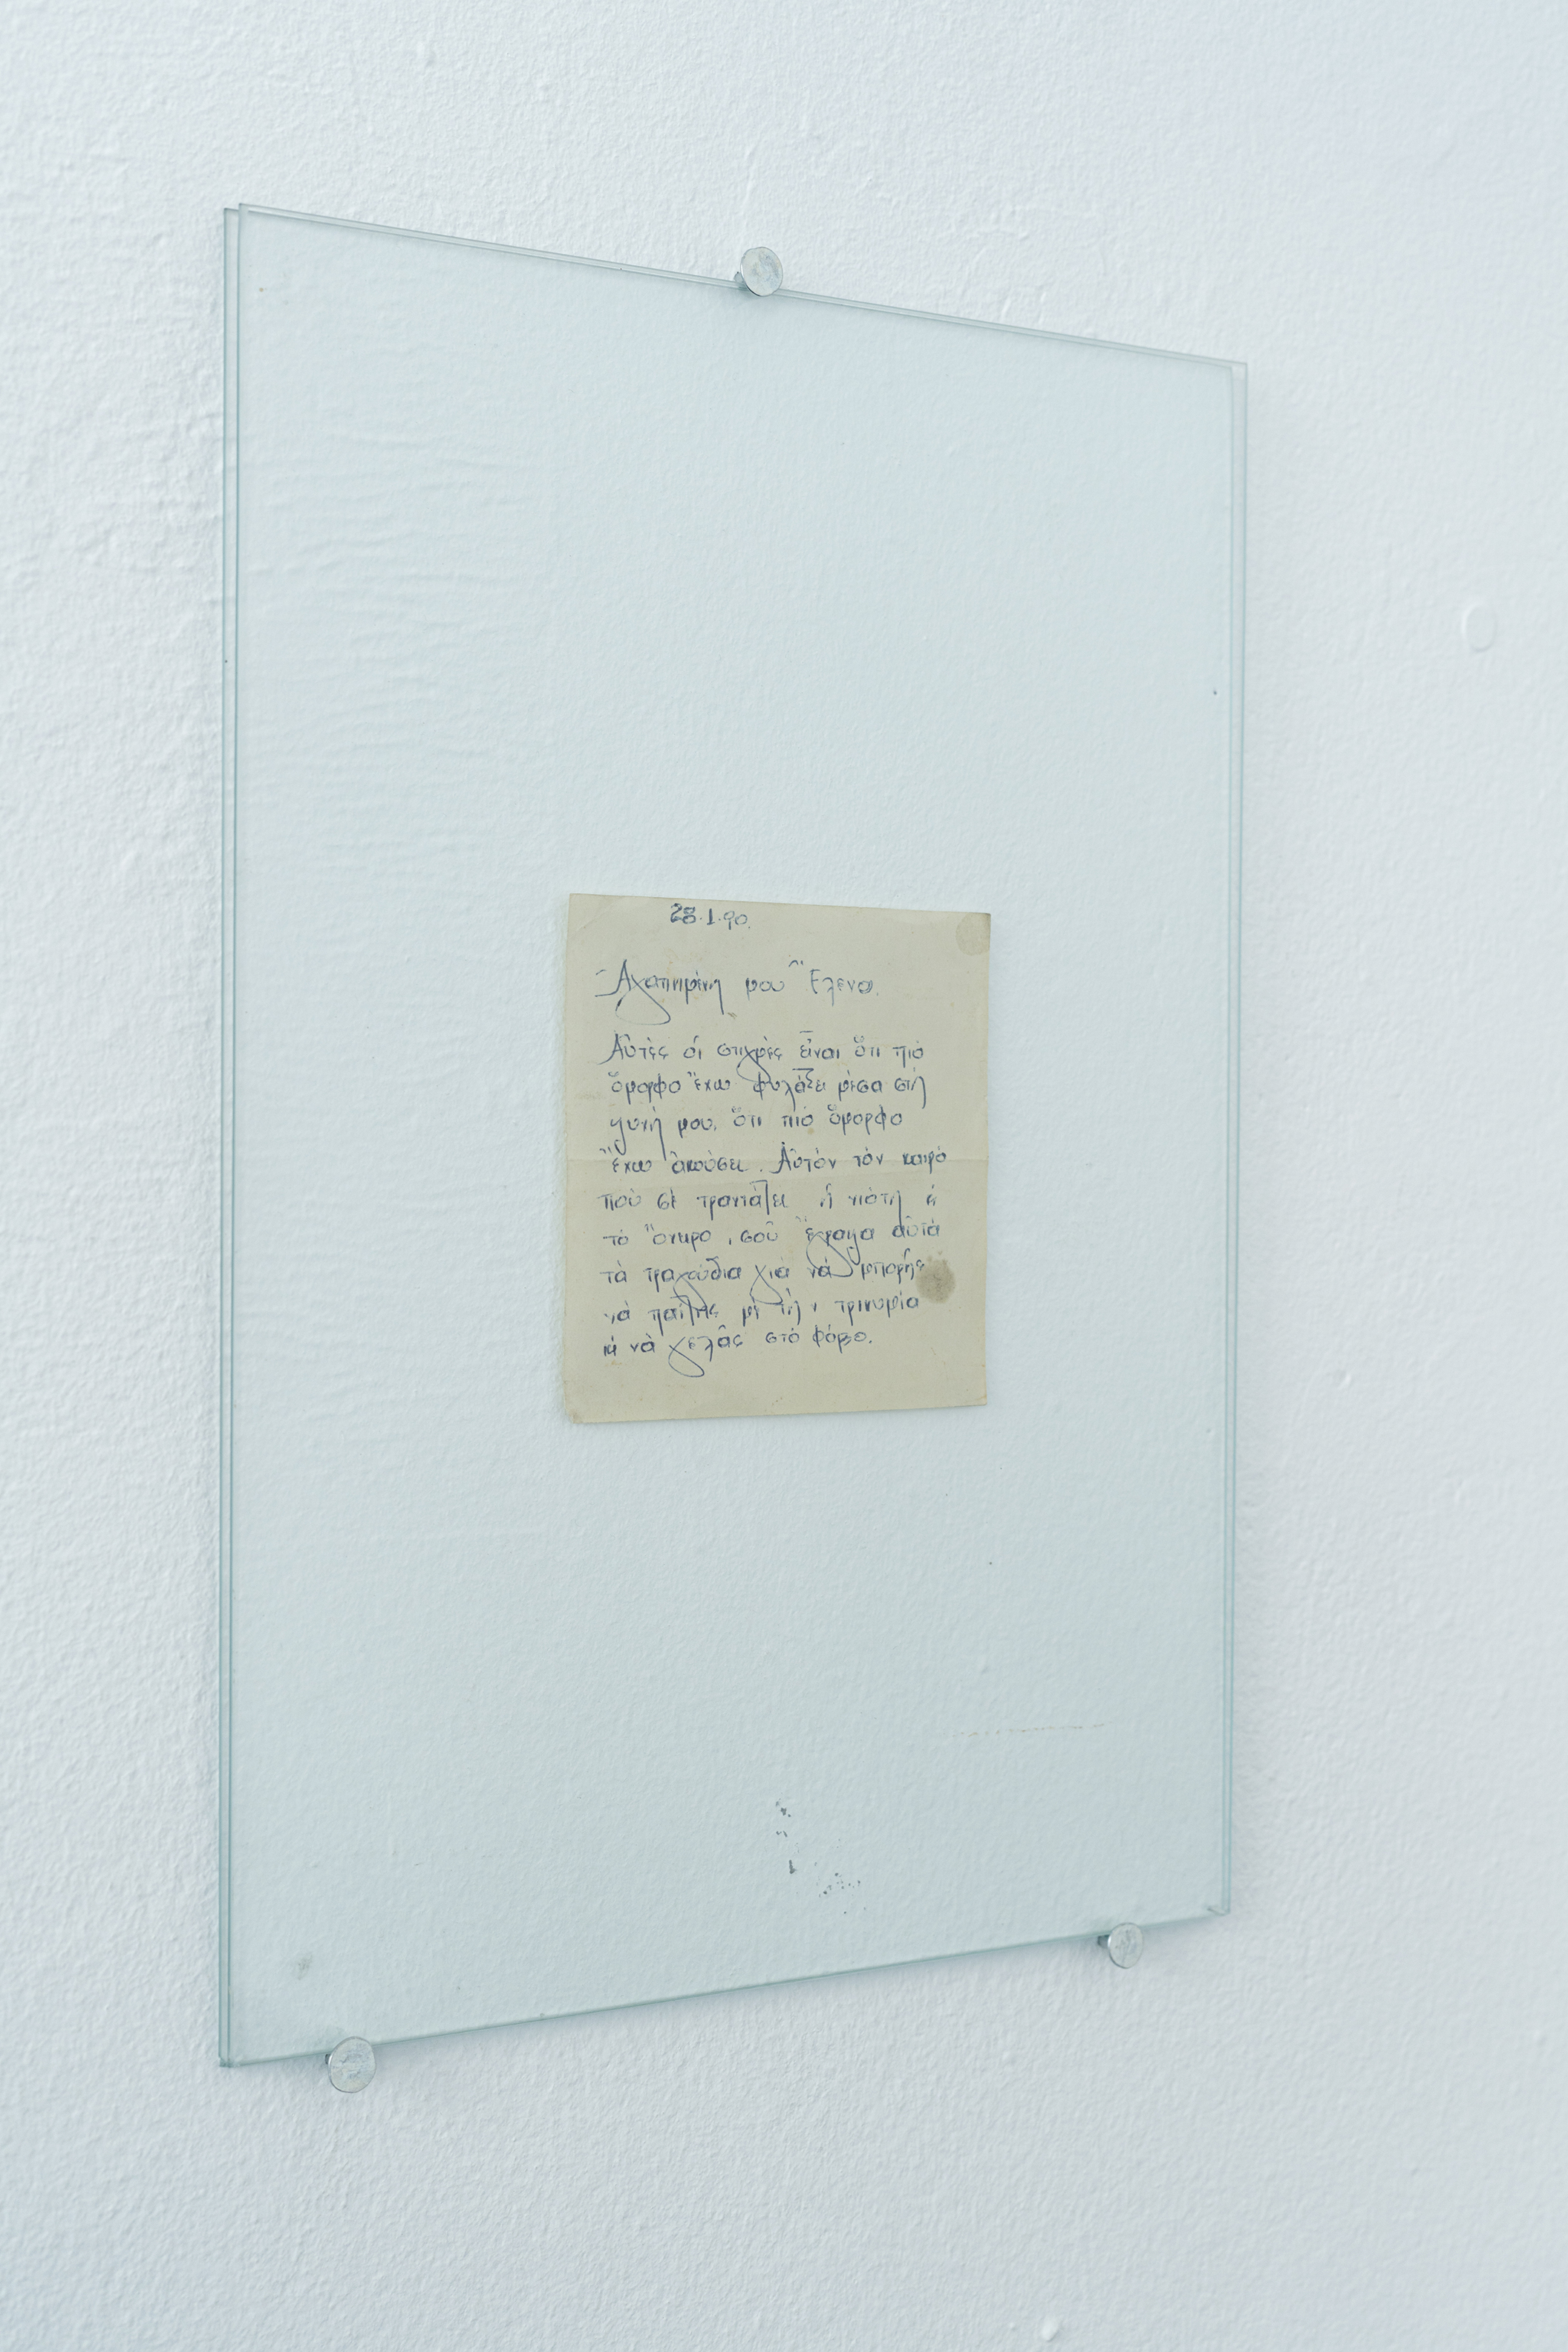 28.1.90.
Ἀγαπημένη μου Ἕλενα.
Αὐτές οἱ στιγμές εἶναι ὅτι πιό
ὄμορφο ἔχω φυλάξει μέσα στή
ψυχή μου, ὅτι πιό ὄμορφο
ἔχω ἀκούσει. Αὐτόν τόν καιρό
πού σέ τραντάζει ἡ νιότη κ
τό ὄνειρο, σοῦ ἔγραψα αὐτά
τά τραγούδια γιά νά μπορῆς
νά παίζης μέ τή τρικυμία
κ νὰ γελᾶς στό φόβο.